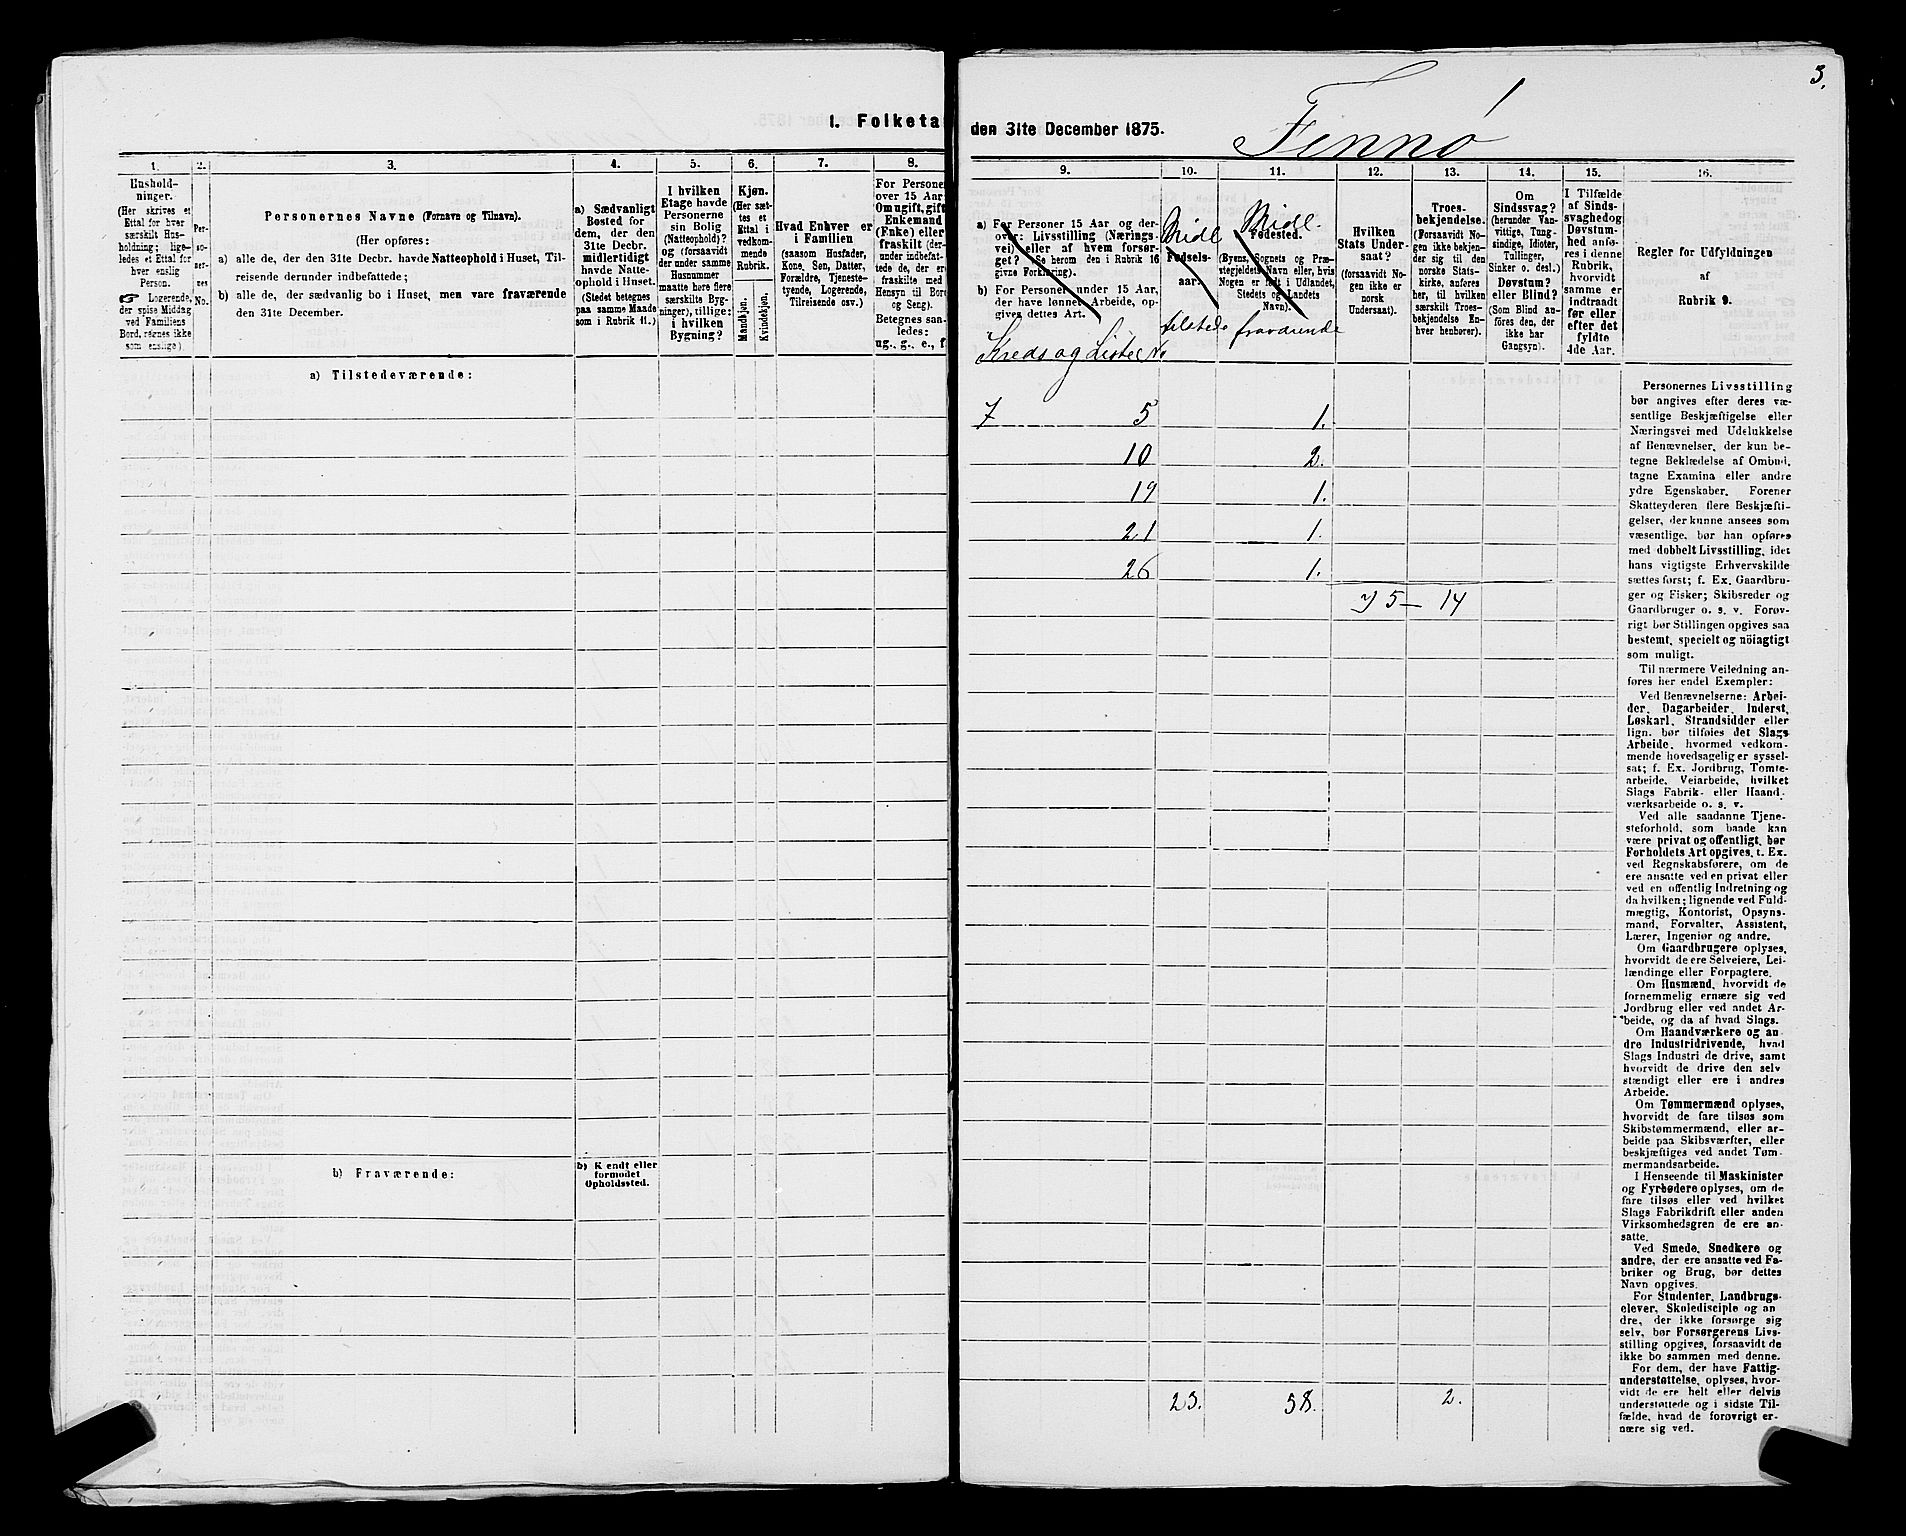 3.
Finnø
1. Folketa
den 31te December 1875.
1.
2.
3.
4.
5.
6.
7.
8.
9.
10.
11.
12.
13.
14.
15.
16.
Husholdninger.
(Her skrives et
Ettal for hver
særskilt Husholdning; ligeledes et Ettal for
hver enslig
Person.
☞ Logerende,
der spise Middag
ved Familiens
Bord, regnes ikke
som enslige).
Personernes No.
Personernes Navne (Fornavn og Tilnavn).
(Her opføres:
a) alle de, der den 31te Decbr. havde Natteophold i Huset, Tilreisende derunder indbefattede;
b) alle de, der sædvanlig bo i Huset, men vare fraværende
den 31te December.
a) Sædvanligt
Bosted for
dem, der den
31te Decbr.
midlertidigt
havde Natteophold i Huset.
(Stedet betegnes
paa samme Maade
som i Rubrik 11.)
I hvilken
Etage havde
Personerne
sin Bolig
(Natteophold)?
og (forsaavidt
der under samme
Husnummer
maatte høre flere
særskilte Bygninger), tillige:
i hvilken
Bygning?
Kjøn.
(Her sættes et
Ettal i
vedkommende
Rubrik.
Mandkjøn.
Kvindekjøn.
Hvad Enhver er
i Familien
(saasom Husfader,
Kone, Søn, Datter,
Forældre, Tjenestetyende, Logerende,
Tilreisende osv.)
For Persone
over 15 Aar:
Om ugift, gift
Enkemand
(Enke) eller
fraskilt (derunder indbefattede de, der e
fraskilte med
Hensyn til Bo
og Seng).
Betegnes saaledes:
ug., g., e., f.
a) For Personer 15 Aar og derover: Livsstilling (Næringsvei) eller af hvem forsørget? (Se herom den i Rubrik 16
givne Forklaring).
b) For Personer under 15 Aar,
der have lønnet Arbeide, opgives dettes Art.
Midl
Fødselsaar.
tilstede
Midl.
Fødested.
(Byens, Sognets og Præstegjeldets Navn eller, hvis
Nogen er født i Udlandet,
Stedets og Landets
Navn).
fraværende
Hvilken
Stats Undersaat?
(forsaavidt Nogen ikke er
norsk
Undersaat).
Troesbekjendelse.
(Forsaavidt Nogen ikke bekjender sig til den
norske Statskirke, anføres
her, til hvilket
særskilt Troesbekjendelse Enhver henhører).
Om
Sindssvag?
(herunder Vanvittige, Tungsindige, Idioter,
Tullinger,
Sinker o. desl.)
Døvstum?
eller Blind?
(Som Blind anføres den, der
ikke har
Gangsyn).
I Tilfælde
af Sindssvaghed og
Døvstumhed anføres i denne
Rubrik,
hvorvidt
samme er
indtraadt
før eller
efter det
fyldte
4de Aar.
Regler for Udfyldningen
af
Rubrik 9.
Kreds og Liste No
a) Tilstedeværende:
7 5 1.
10 2.
19 1.
21 1.
26 1.
75 — 14
b) Fraværende:
b) Kendt eller
formodet
Opholdssted.
23. 58. 2.
Personernes Livsstilling
bør angives efter deres væsentlige Beskjæftigelse eller
Næringsvei med Udelukkelse
af Benævnelser, der kun betegne Beklædelse af Ombud,
tagne Examina eller andre
ydre Egenskaber. Forener
Skatteyderen flere Beskjæftigelser, der kunne ansees som
væsentlige, bør han opføres
med dobbelt Livsstilling, idet
hans vigtigste Erhvervskilde
sættes først; f. Ex. Gaardbruger og Fisker; Skibsreder og
Gaardbruger o. s. v. Forøvrigt bør Stillingen opgives saa
bestemt, specielt og nöiagtigt
som muligt.
Til nærmere Veiledning anføres her endel Exempler:
Ved Benævnelserne: Arbeider, Dagarbeider, Inderst,
Løskarl, Strandsidder eller
lign. bør tilføies det Slags
Arbeide, hvormed vedkommende hovedsagelig er sysselsat; f. Ex. Jordbrug, Tomtearbeide, Veiarbeide, hvilket
Slags Fabrik- eller Haandværksarbeide o. s. v.
Ved alle saadanne Tjenesteforhold, som baade kan
være privat og offentligt, bør
Forholdets Art opgives, t. Ex.
ved Regnskabsførere, om de
ere ansatte ved en privat eller
ved en offentlig Indretning og
da hvilken; lignende ved Fuldmægtig, Kontorist, Opsynsmand, Forvalter, Assistent,
Lærer, Ingeniør og andre.
Om Gaardbrugere oplyses,
hvorvidt de ere Selveiere, Leilændinge eller Forpagtere.
Om Husmænd, hvorvidt de
fornemmelig ernære sig ved
Jordbrug eller ved andet Arbeide, og da af hvad Slags.
Om Haandværkere og andre Industridrivende, hvad
Slags Industri de drive, samt
hvorvidt de drive den selvstændigt eller ere i andres
Arbeide.
Om Tømmermænd oplyses,
hvorvidt de fare tilsøs som
Skibstømmermænd, eller arbeide paa Skibsværfter, eller
beskjæftiges ved andet Tømmermandsarbeide.
I Henseende til Maskinister
og Fyrbødere oplyses, om de
fare tilsøs eller ved hvilket
Slags Fabrikdrift eller anden
Virksomhedsgren de ere ansatte.
Ved Smede, Snedkere og
andre, der ere ansatte ved Fabriker og Brug, bør dettes
Navn opgives.
For Studenter, Landbrugselever, Skoledisciple og andre, der ikke forsørge sig
selv, bør Forsørgerens Livsstilling opgives, forsaavidt de
ikke bo sammen med denne.
For dem, der have Fattigunderstøttelse, oplyses, hvorvidt de ere helt eller delvis
understøttede og i sidste Tilfælde, hvad de forøvrigt ernære sig ved.